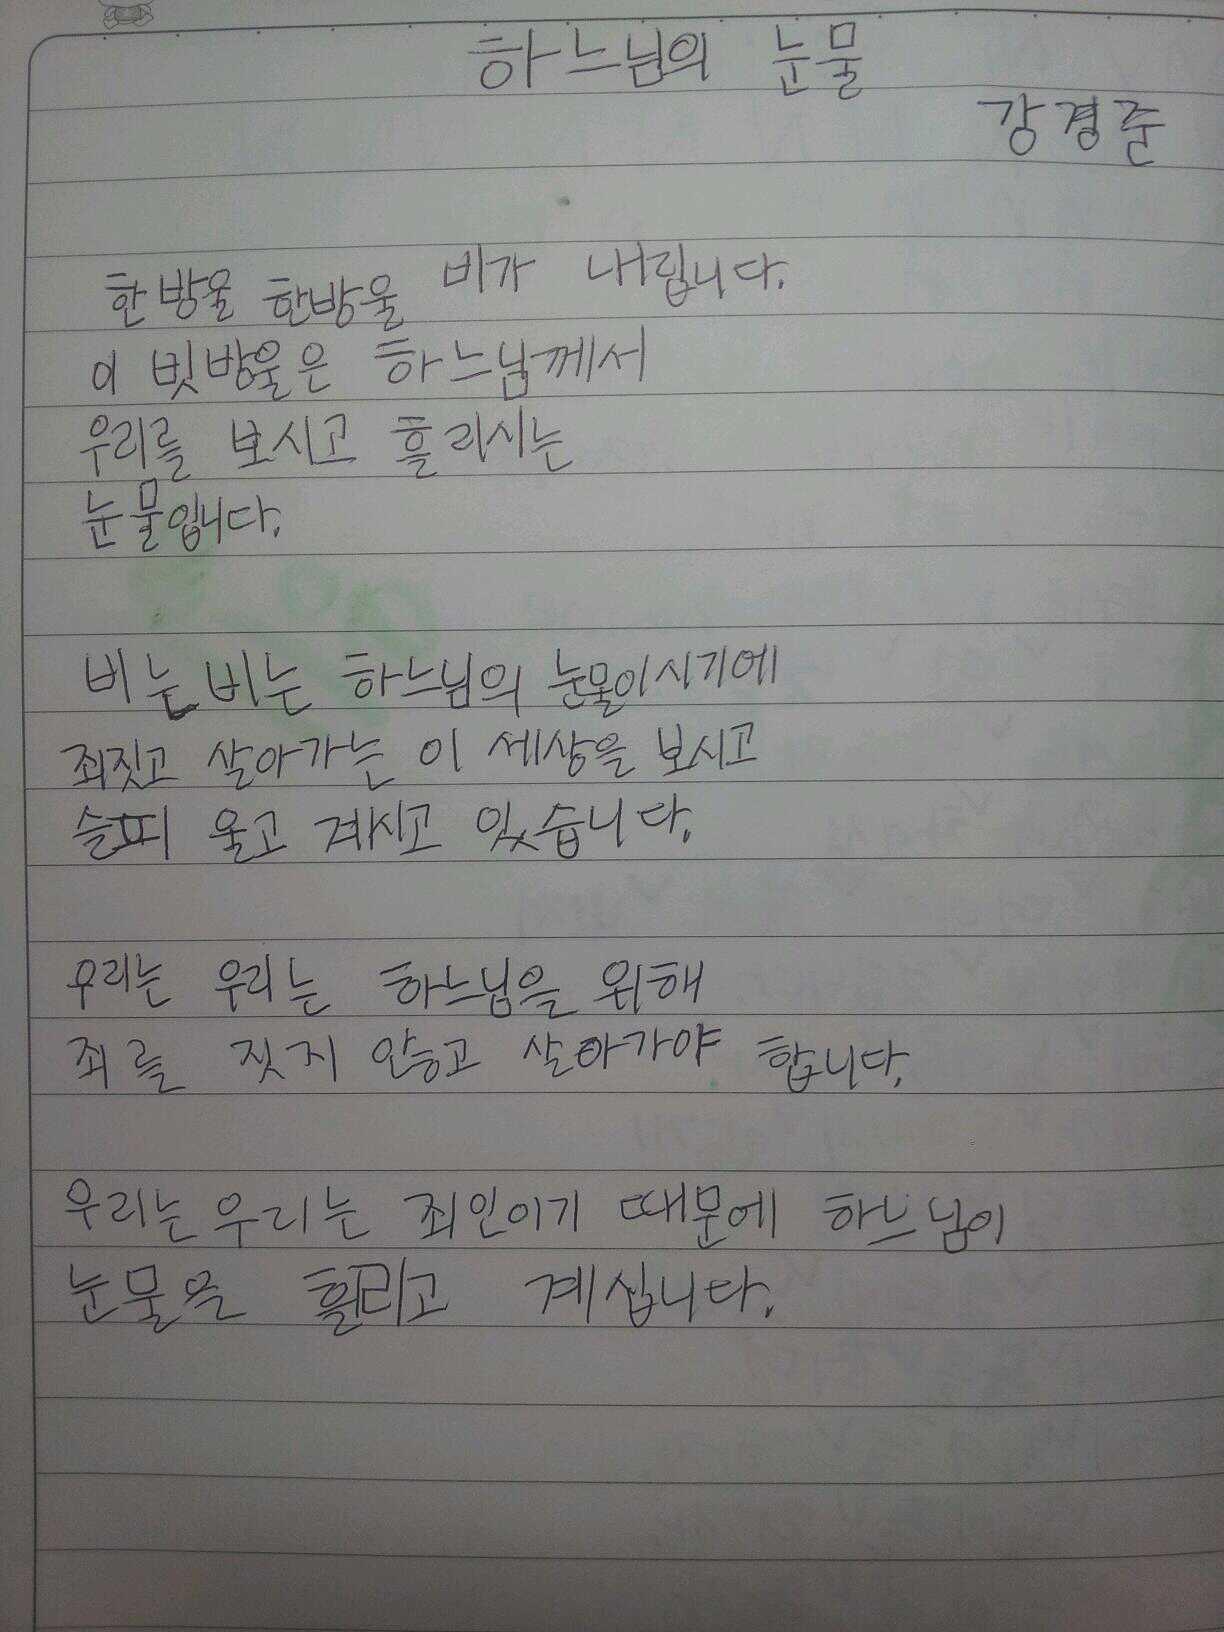 하느님의 눈물
강경준
한방울 한방울 비가 내립니다.
이 빗방울은 하느님께서
우리를 보시고 흘리시는
눈물입니다.
비는 비는 하느님의 눈물이시기에
죄짓고 살아가는 이 세상을 보시고
슬피 울고 계시고 있습니다.
우리는 우리는 하느님을 위해
죄를 짓지 않고 살아가야 합니다.
우리는 우리는 죄인이기 때문에 하느님이
눈물을 흘리고 계십니다.